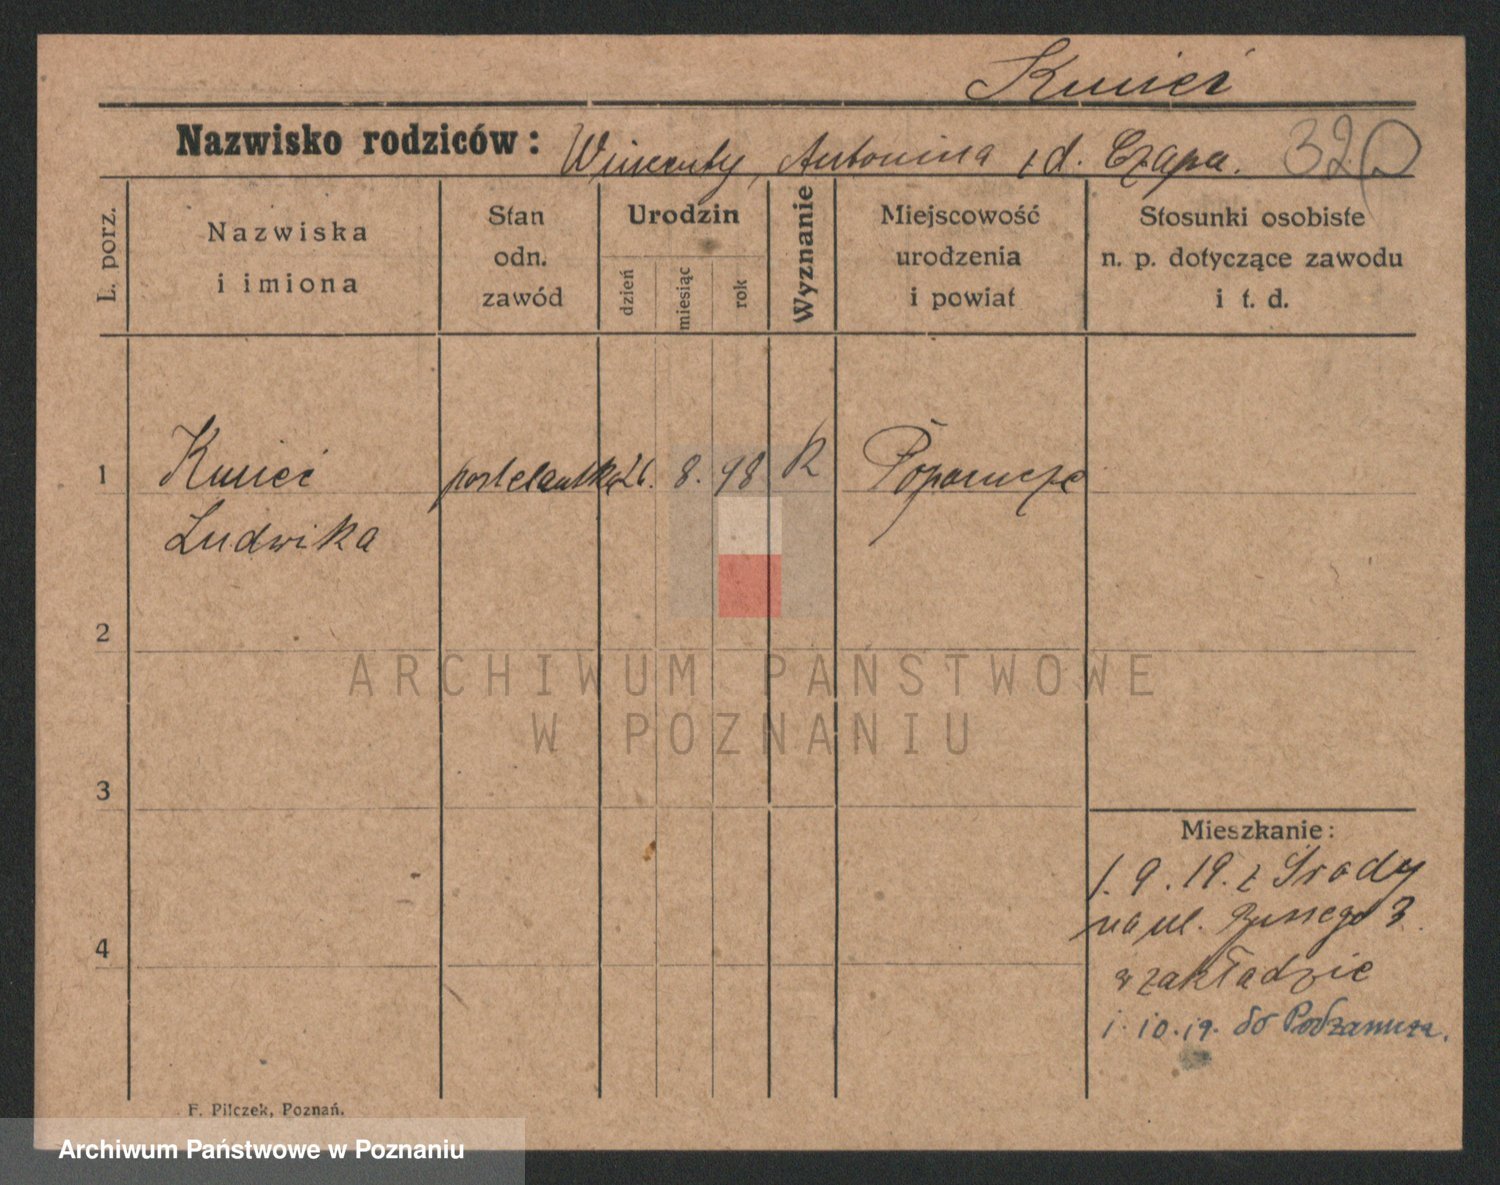 Kmieć
Nazwisko rodziców: Wincenty, Antonina z d. Czapa. 320
L. porz.
Nazwiska
i imiona
Stan
odn.
zawód
Urodzin
dzień
miesiąc
rok
Wyznanie
Miejscowość
urodzenia
i powiat
Stosunki osobiste
n. p. dotyczące zawodu
i t. d.
1
Kmieć
Ludwika
postulantka
26. 8. 98
R
2
3
4
ARCHIWUM PAŃSTWOWE
W POZNANIU
Mieszkanie:
1. 9. 19. z Środy
na ul. 3.
w zakładzie
1. 10. 19. do Podzamcza.
F. Pilczek, Poznań.
Archiwum Państwowe w Poznaniu